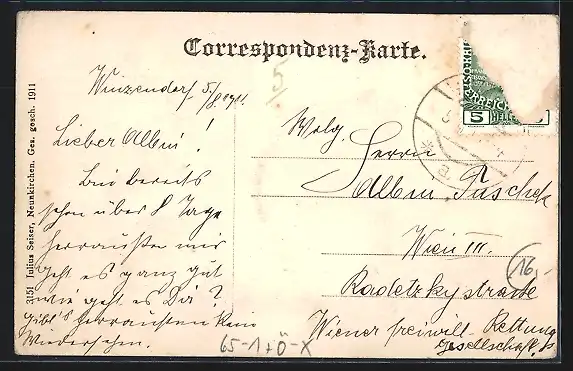 Correspondenz-Karte.
5
Winzendorf 5/8 1911.
Lieber Albin!
Bin bereits
schon über 8 Tage
herraußen mir
geht es ganz gut
wie geht es Dir?
Gibt's herraußen kein
Wiedersehen.
Wolg.
Herrn
Albin Tuschek
Wien III.
Radetzkystrasse
Wiener freiwill. Rettung
Gesellschaft.
16,-
65-1+Ö-X
5
3151 Julius Seiser, Neunkirchen. Ges. gesch. 1911